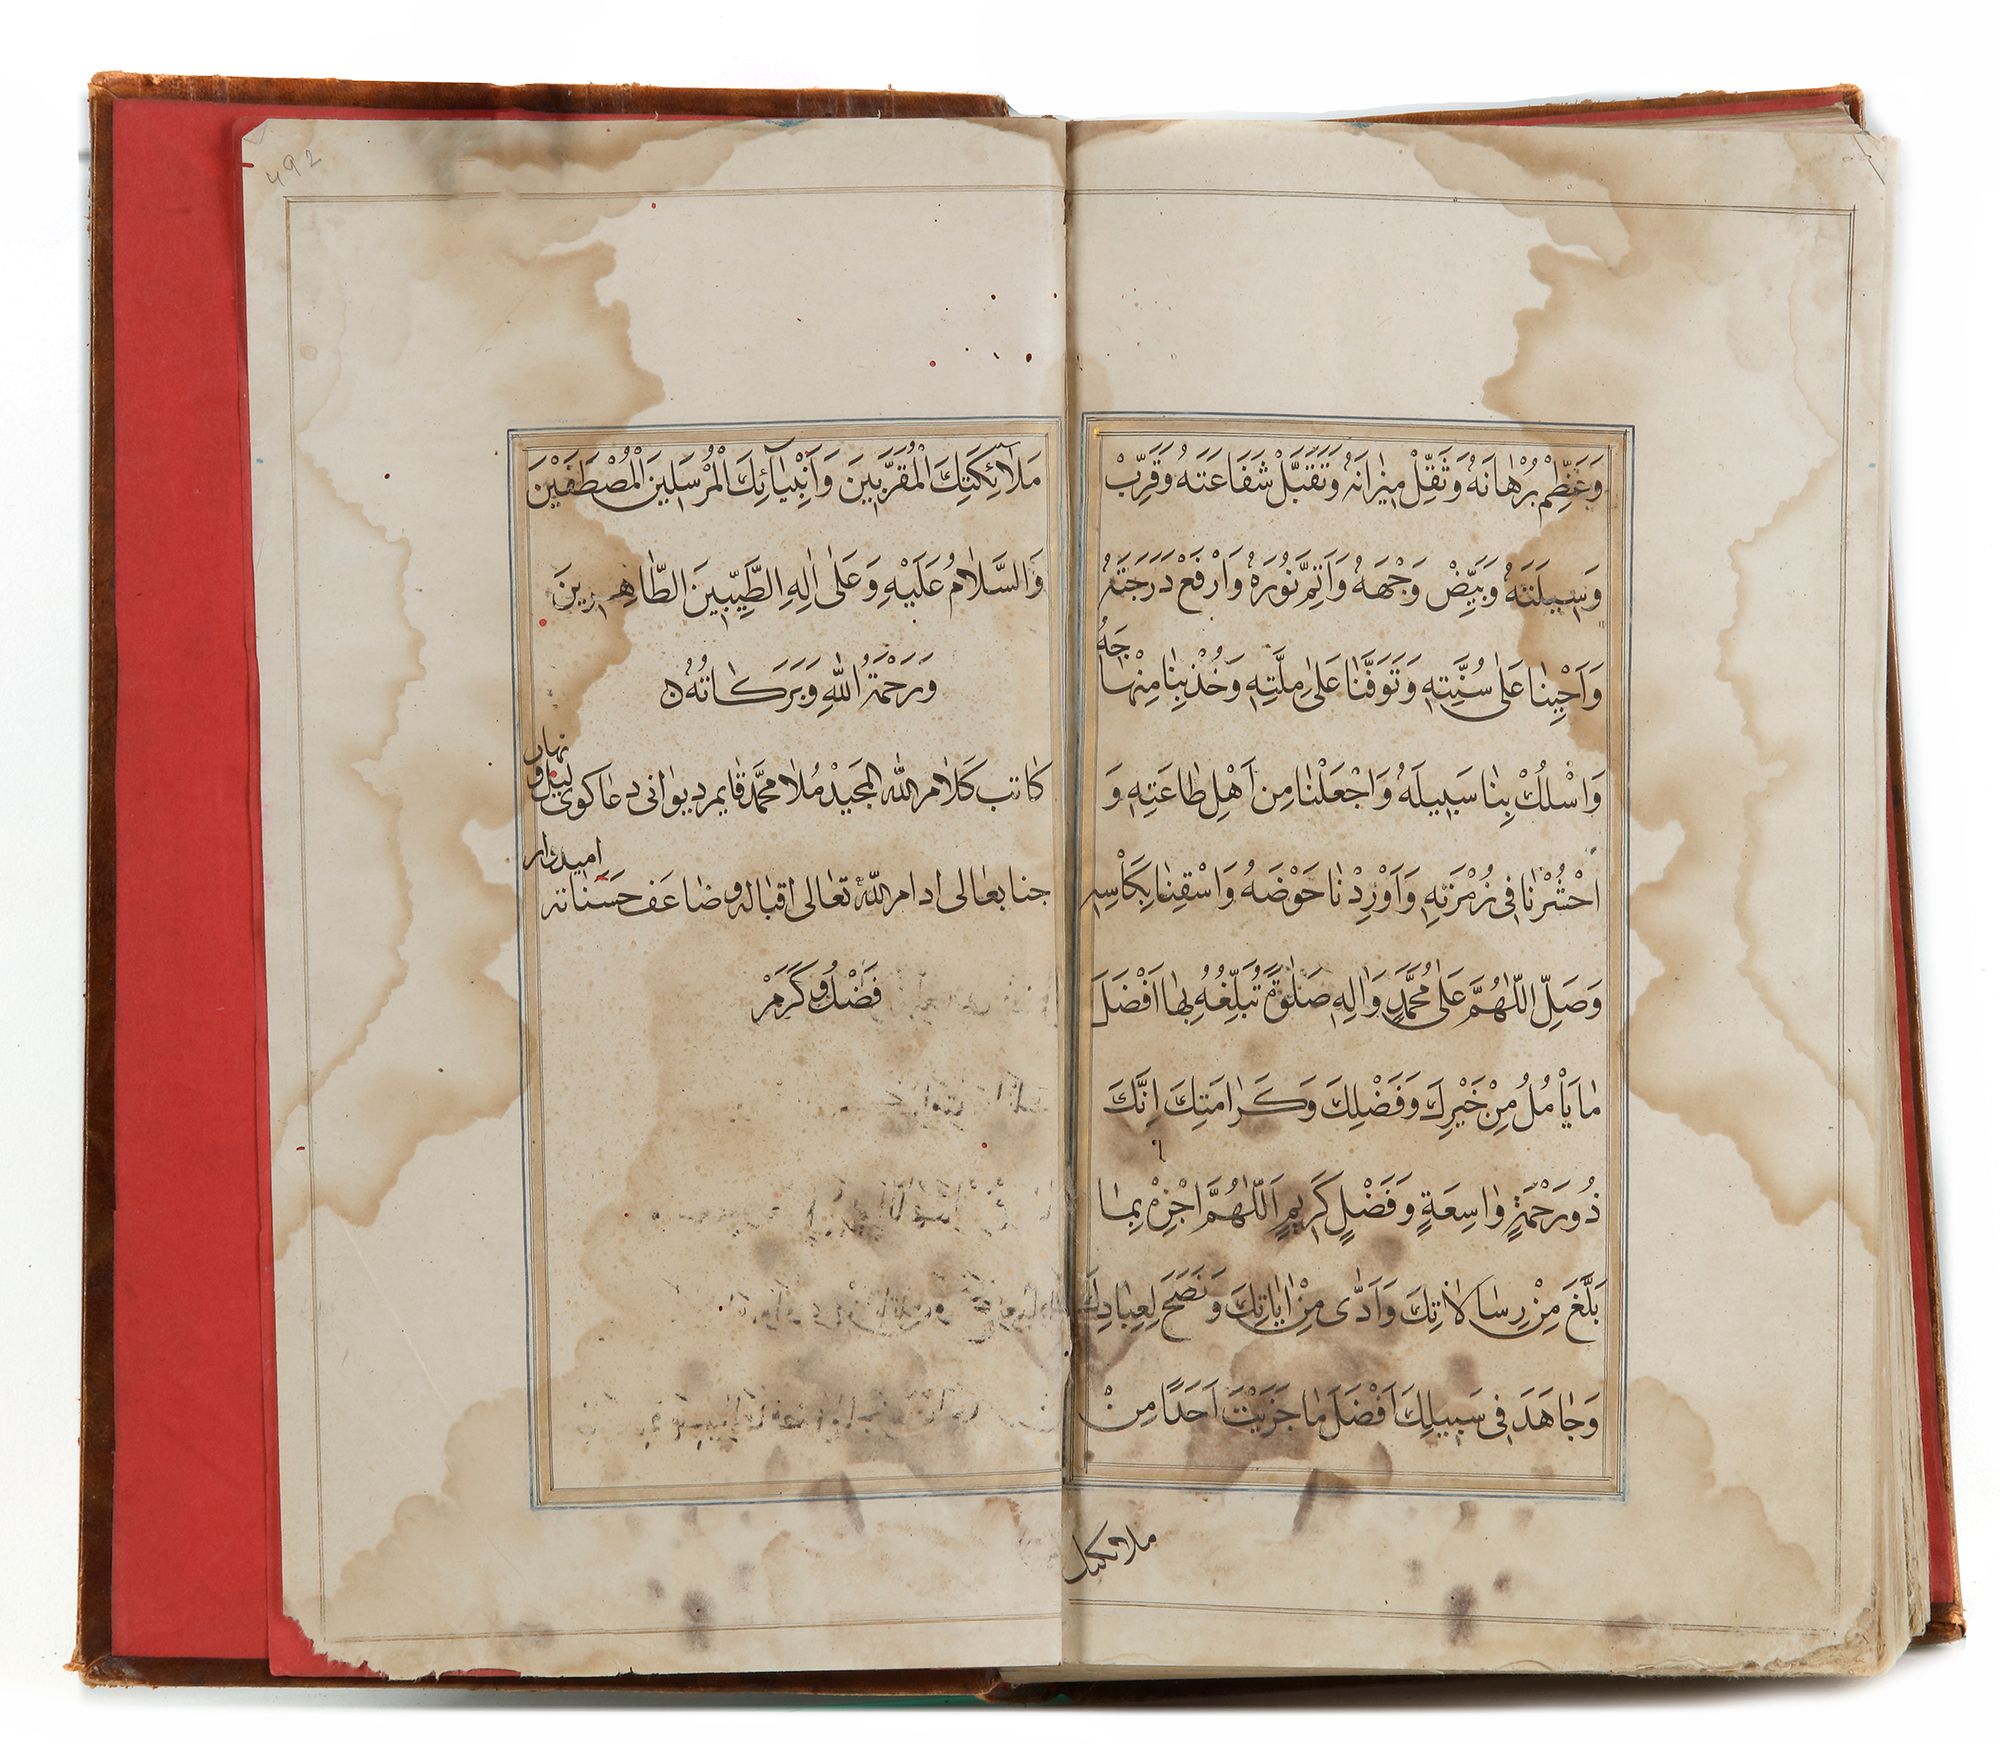 وَعَظِّمْ بُرْهَانَهُ وَثَقِّلْ مِيزَانَهُ وَتَقَبَّلْ شَفَاعَتَهُ وَقَرِّبْ
وَسِيلَتَهُ وَبَيِّضْ وَجْهَهُ وَأَتِمَّ نُورَهُ وَارْفَعْ دَرَجَتَهُ
وَاَحْيِنَا عَلٰى سُنَّتِهِ وَتَوَفَّنَا عَلٰى مِلَّتِهِ وَخُذْ بِنَا مِنْهَاجَهُ
وَاسْلُكْ بِنَا سَبِيلَهُ وَاجْعَلْنَا مِنْ اَهْلِ طَاعَتِهِ وَ
احْشُرْنَا فِي زُمْرَتِهِ وَاَوْرِدْنَا حَوْضَهُ وَاسْقِنَا بِكَأْسِهِ
وَصَلِّ اللّٰهُمَّ عَلٰى مُحَمَّدٍ وَاٰلِهِ صَلٰوةً تُبَلِّغُهُ بِهَا اَفْضَلَ
مَا يَأْمُلُ مِنْ خَيْرِكَ وَفَضْلِكَ وَكَرَامَتِكَ اِنَّكَ
ذُو رَحْمَةٍ وَاسِعَةٍ وَفَضْلٍ كَرِيمٍ اَللّٰهُمَّ اجْزِهْ بِمَا
بَلَّغَ مِنْ رِسَالَاتِكَ وَاَدّٰى مِنْ اٰيَاتِكَ وَنَصَحَ لِعِبَادِكَ
وَجَاهَدَ فِي سَبِيلِكَ اَفْضَلَ مَا جَزَيْتَ اَحَدًا مِنْ
ملائكتك
مَلَآئِكَتِكَ الْمُقَرَّبِينَ وَاَنْبِيَآئِكَ الْمُرْسَلِينَ الْمُصْطَفَيْنَ
وَالسَّلَامُ عَلَيْهِ وَعَلٰى اٰلِهِ الطَّيِّبِينَ الطَّاهِرِينَ
وَرَحْمَةُ اللّٰهِ وَبَرَكَاتُهُ
كاتب كلام الله المجيد ملا محمّد قايم ديوانى دعا كوى ليل و نهار
اميدوار
جنابعالى ادام الله تعالى اقباله وضاعف حسناته
فضل و كرم
۴۹۲